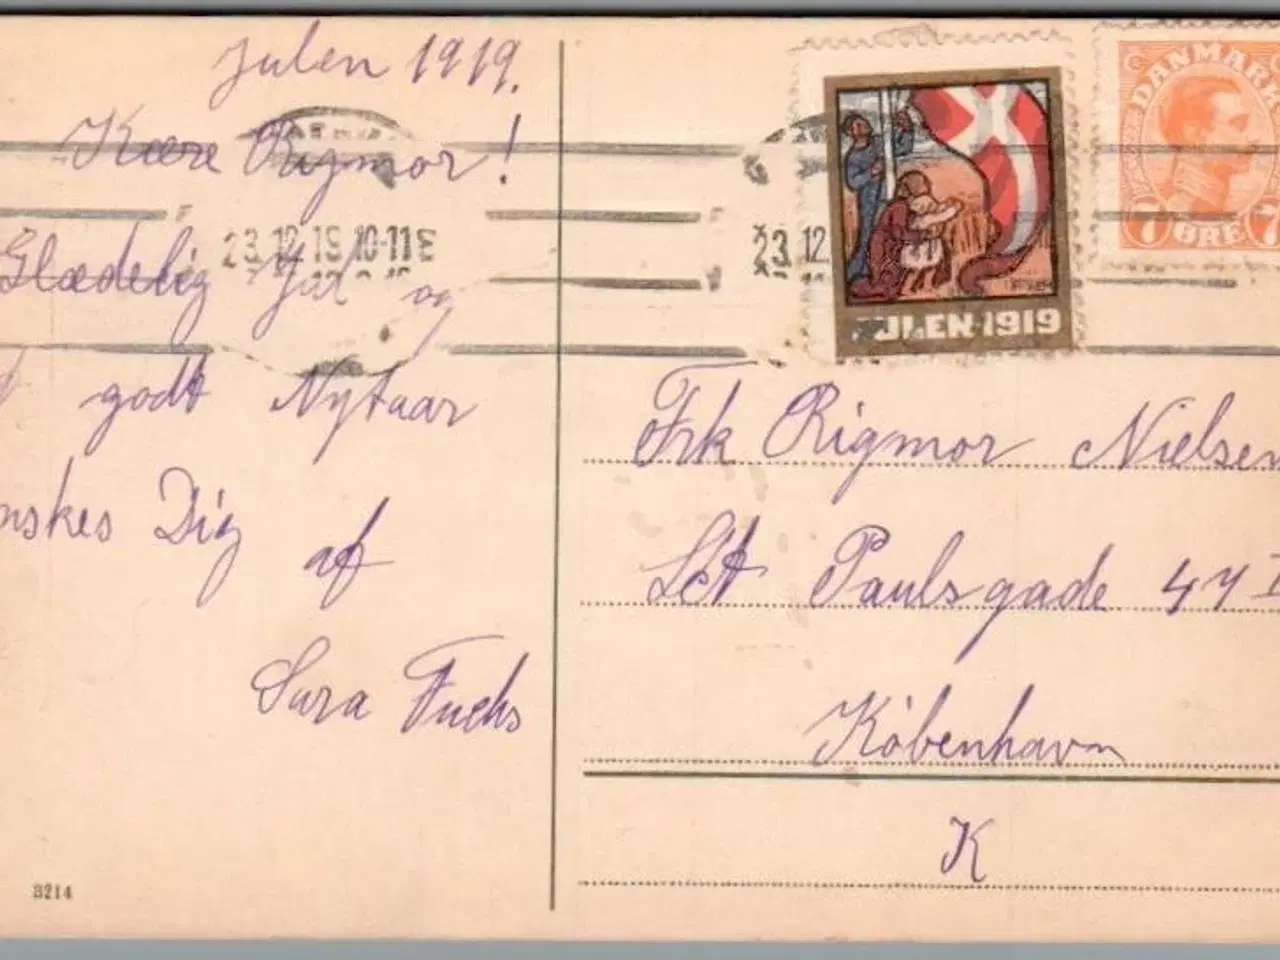 Julen 1919.
Kære Rigmor!
Glædelig Jul og
godt Nytaar
nskes Dig af
Sara Fuchs
3214
23.12.19.10-11E
23.12
JULEN·1919
DANMARK
7 ØRE 7
Frk Rigmor Nielsen
Sct Paulsgade 47 I
København
K